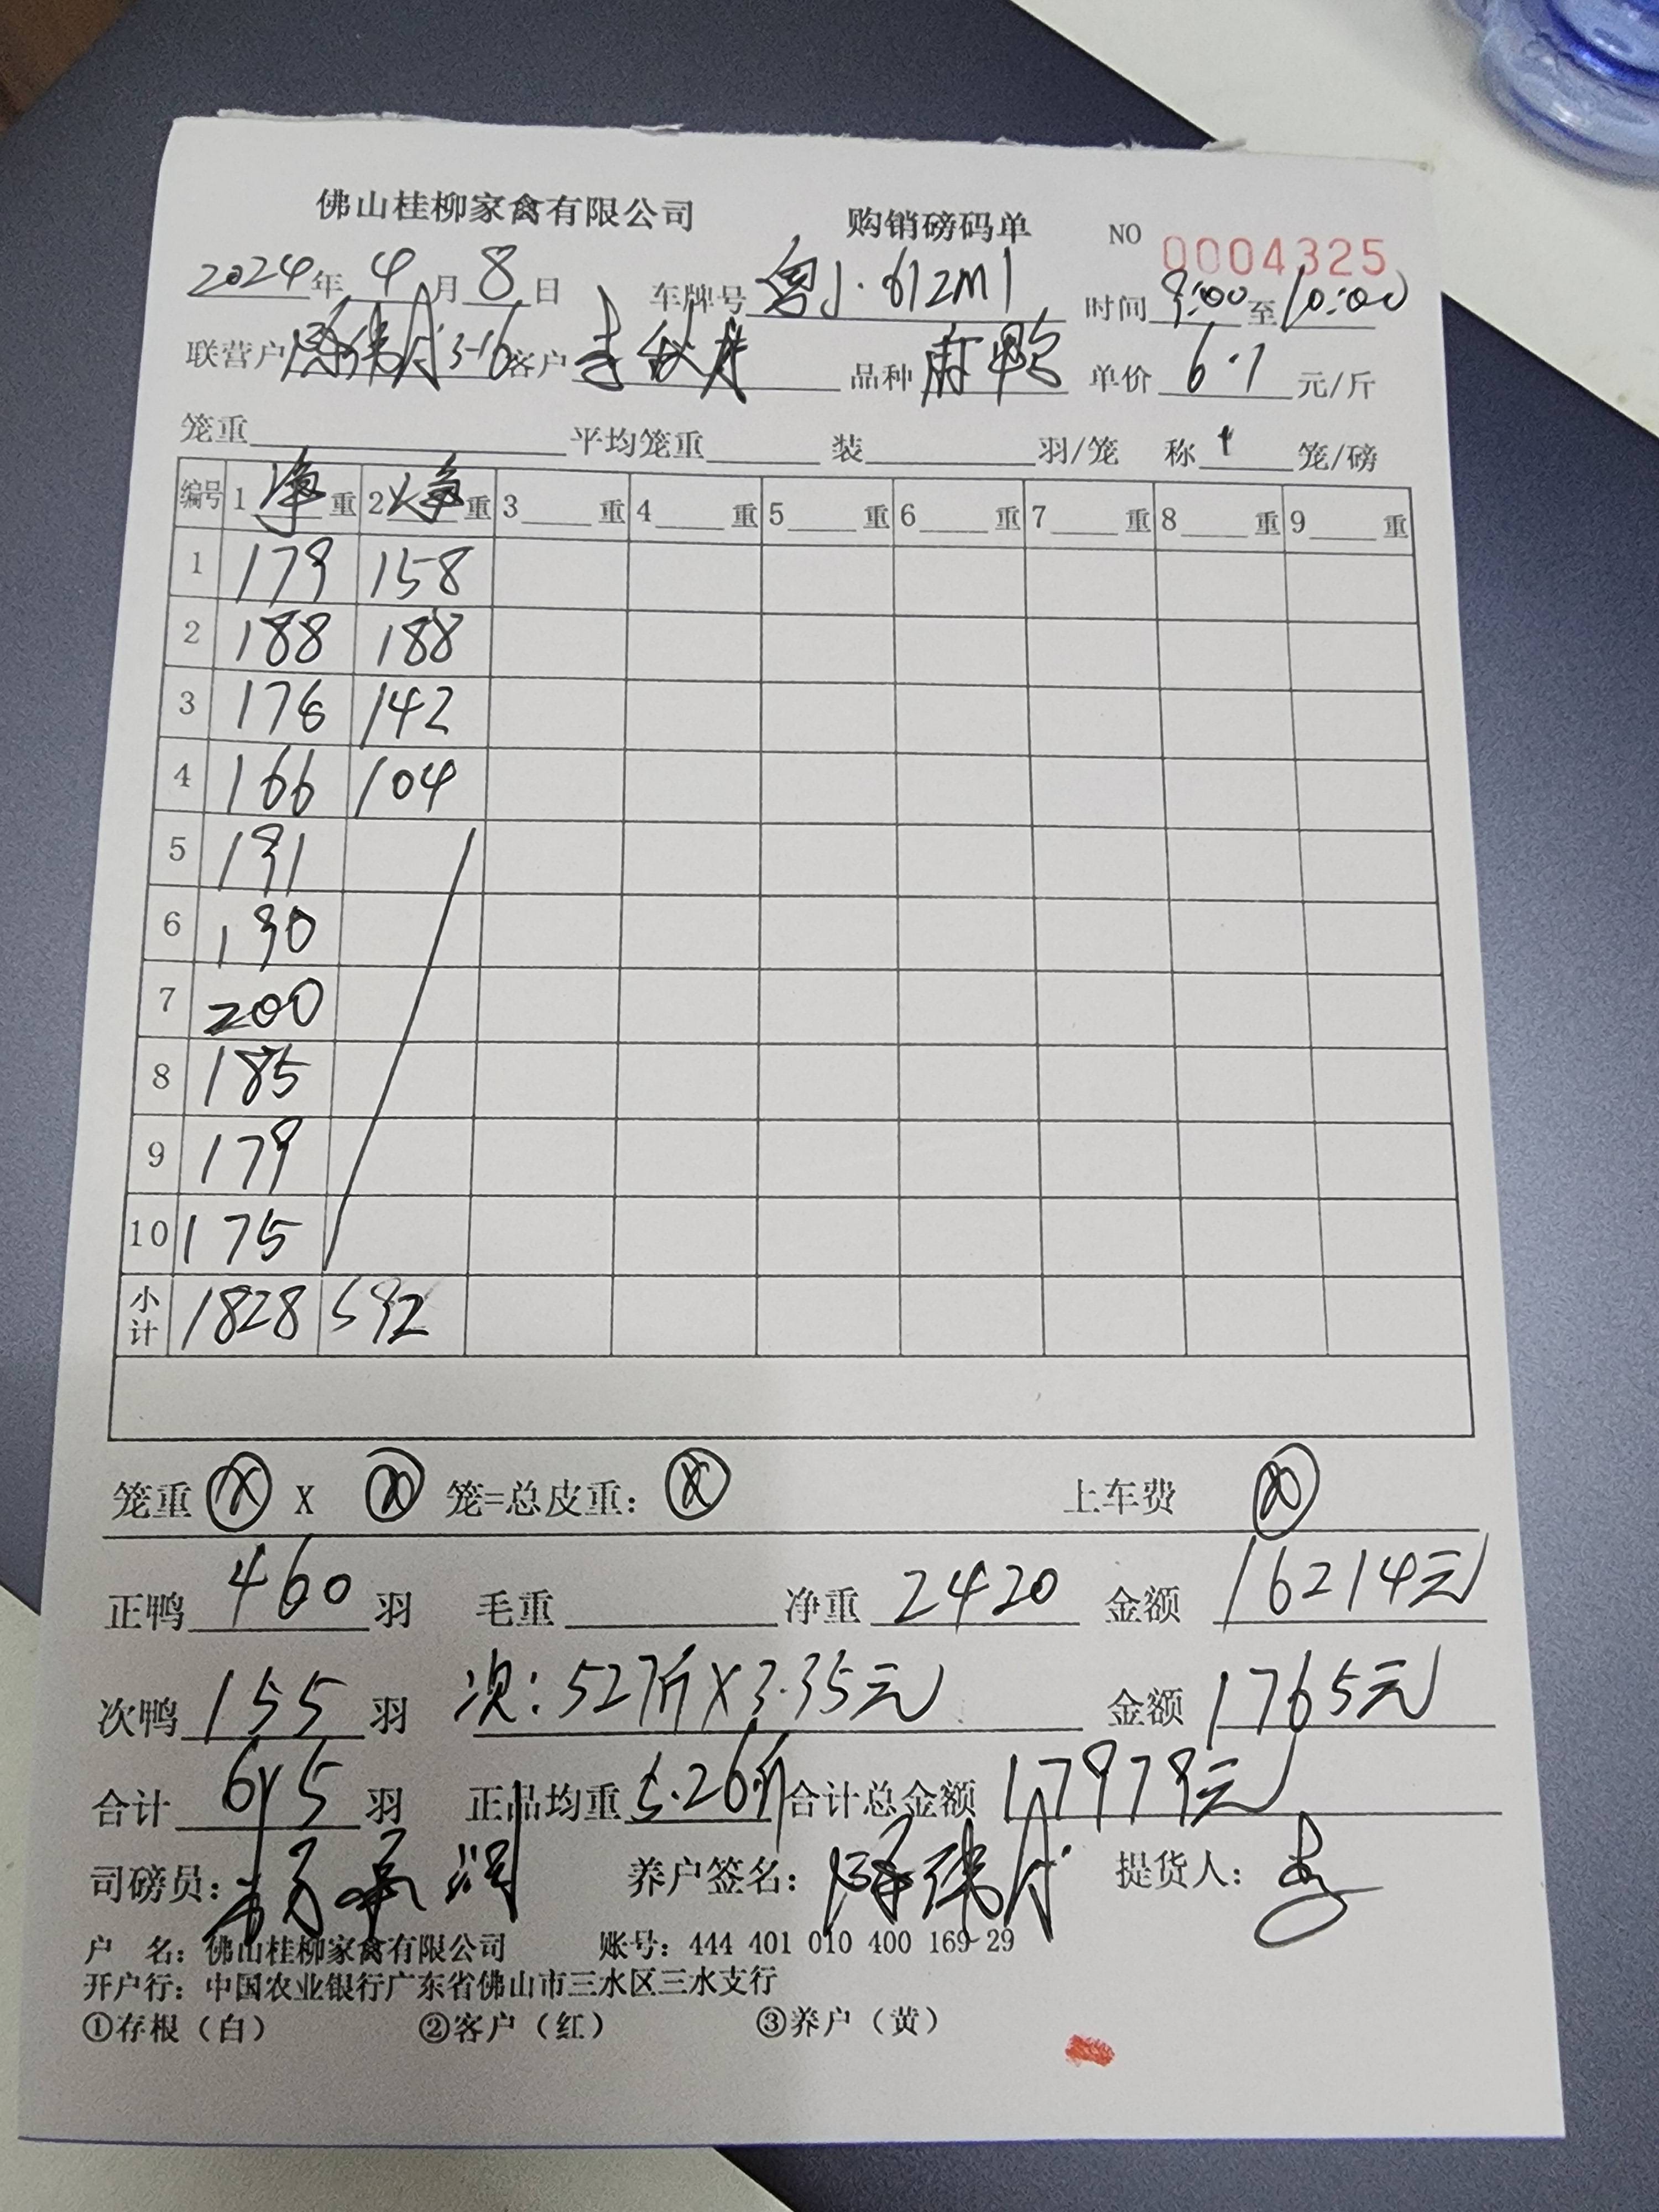 佛山桂柳家禽有限公司 购销磅码单 NO 0004325
2024年 4月 8日 车牌号 粤J·612M1 时间 9:00 至 10:00
联营户 3-16 客户 品种 麻鸭 单价 6.7 元/斤
笼重 平均笼重 装 羽/笼 称 1 笼/磅
编号 1 净 重 2 净 重 3 重 4 重 5 重 6 重 7 重 8 重 9 重
1 179 158
2 188 188
3 176 142
4 166 104
5 191
6 190
7 200
8 185
9 179
10 175
小计 1828 592
笼重 ⊗ X ⊗ 笼=总皮重: ⊗ 上车费 ⊗
正鸭 460 羽 毛重 净重 2420 金额 16214元
次鸭 155 羽 次: 527斤X3.35元 金额 1765元
合计 615 羽 正品均重 5.26斤 合计总金额 17979元
司磅员: 养户签名: 提货人:
户 名: 佛山桂柳家禽有限公司 账号: 444 401 010 400 169 29
开户行: 中国农业银行广东省佛山市三水区三水支行
①存根（白） ②客户（红） ③养户（黄）